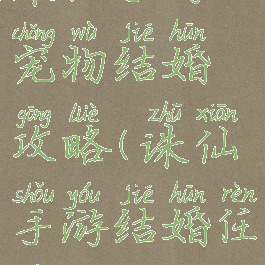 chǒng wù jié hūn
宠物结婚
gōng lüè zhū xiān
攻略(诛仙
shǒu yóu jié hūn rèn
手游结婚任